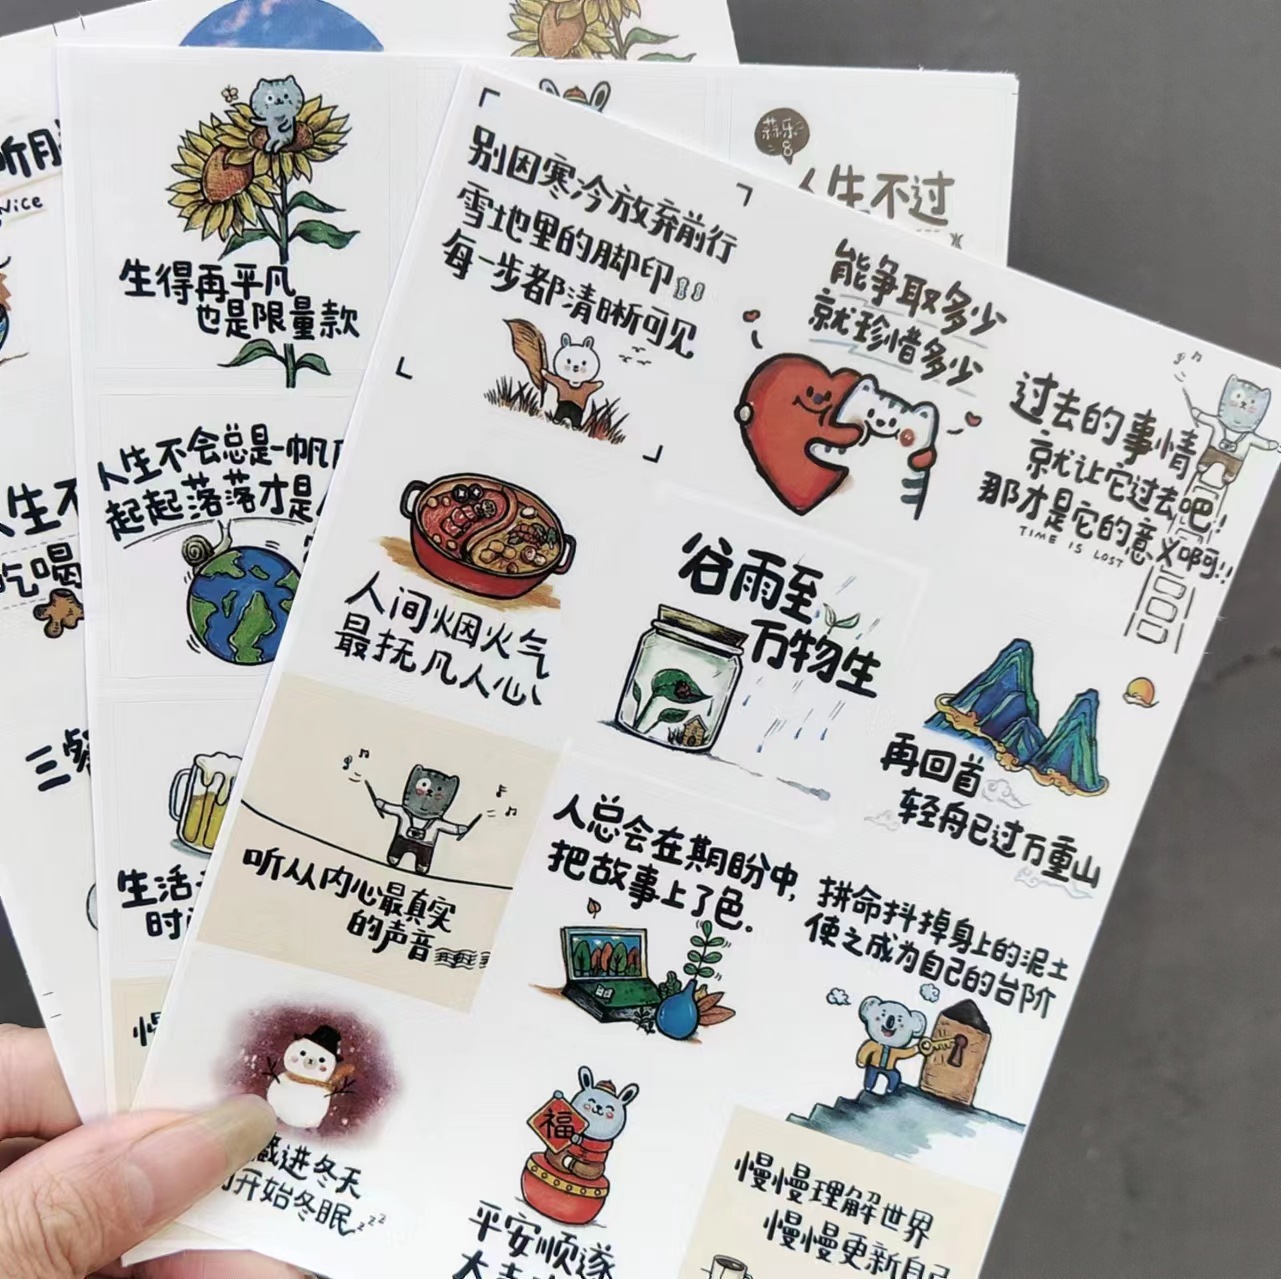 Nice
生得再平凡
也是限量款
蒜乐
人生不过
别因寒冷放弃前行
雪地里的脚印
每一步都清晰可见
能争取多少
就珍惜多少
过去的事情
就让它过去吧!
那才是它的意义啊!!
TIME IS LOST
人生不会总是一帆
起起落落才是
人间烟火气
最抚凡人心
谷雨至
万物生
再回首
轻舟已过万重山
人生不
吃喝
三餐
生活
时
慢
听从内心最真实
的声音
人总会在期盼中,
把故事上了色.
拼命抖掉身上的泥土
使之成为自己的台阶
藏进冬天
开始冬眠zzz
福
平安顺遂
慢慢理解世界
慢慢更新自己